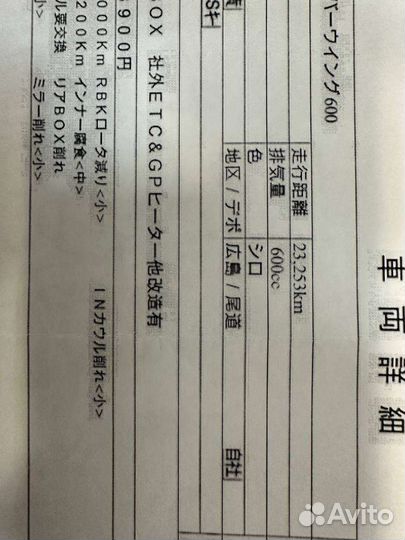 車両詳細
バーウイング600
走行距離 23,253km
排気量 600cc
色 シロ
地区 / デポ 広島 / 尾道 自社
Sキー
BOX 社外ETC&GPヒーター他改造有
900円
000Km RBKロータ減り<小> INカウル削れ<小>
200Km インナー腐食<中>
ル要交換 リアBOX削れ
小> ミラー削れ<小>
Avito